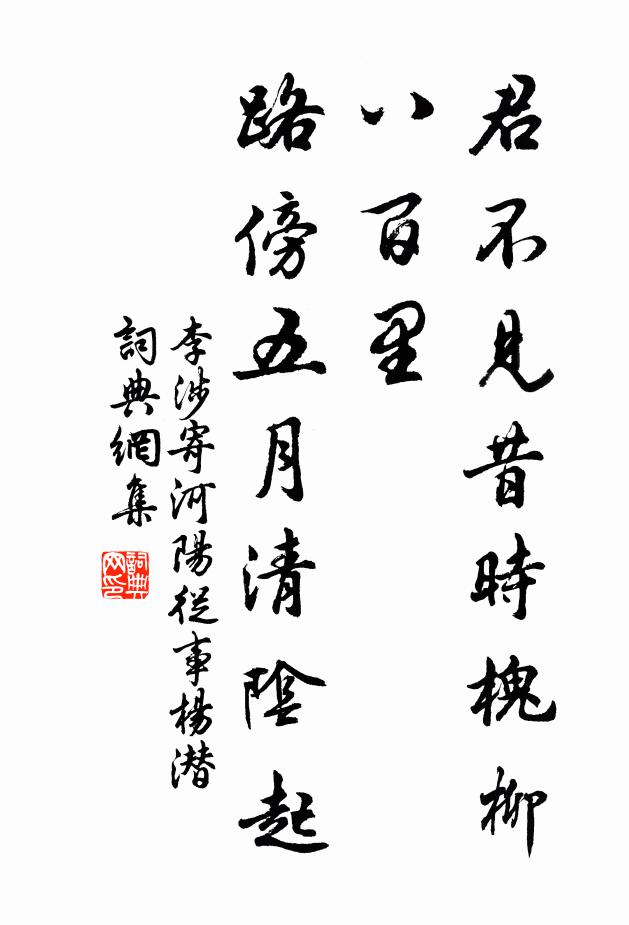 君不見昔時槐柳
八百里
路傍五月清陰起
李涉寄河陽從事楊潛
詞典網集
詞典網印